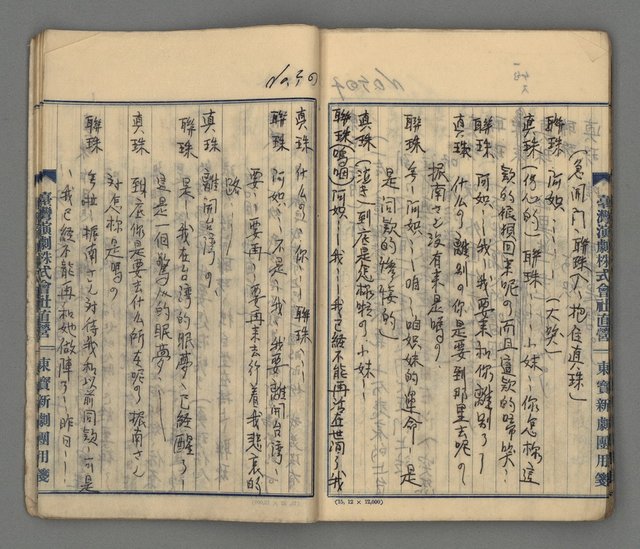 (急開門、聯珠入、抱住真珠)
聯珠 阿姒……(大哭)
真珠 (傷心的)聯珠……小妹……你怎樣這
款的狼狽回来呢。而且這款的啼哭……
聯珠 阿姒……我……我要来和你離別了……
真珠 什么。離別。你是要到那里去呢。
振南さん没有来是嗎。
聯珠 咱……咱姐妹的運命……是
是同款的慘悽的)
真珠 (泣き)到底是怎様款。小妹……
聯珠(嗚咽)阿姒……我……我已經不能再活在世间了我
真珠 什么。你……聯珠
聯珠 阿姒……不是。我……我要離開台湾……
要……要再……要再来去行着我悲哀的
路……
真珠 離開台湾。
聯珠 是……我在台湾的眠夢……已經醒了……
這是一個驚人的眠夢……
真珠 到底你是要去什么所在呢。振南さん
对怎樣是嗎。
聯珠 振南さん对待我和以前同款……可是
……我已經不能再和她做陣了……昨日……
臺灣演劇株式會社直營
東寶新劇團用箋
臺灣演劇株式會社直營
東寶新劇團用箋
(15. 12 × 12,000)